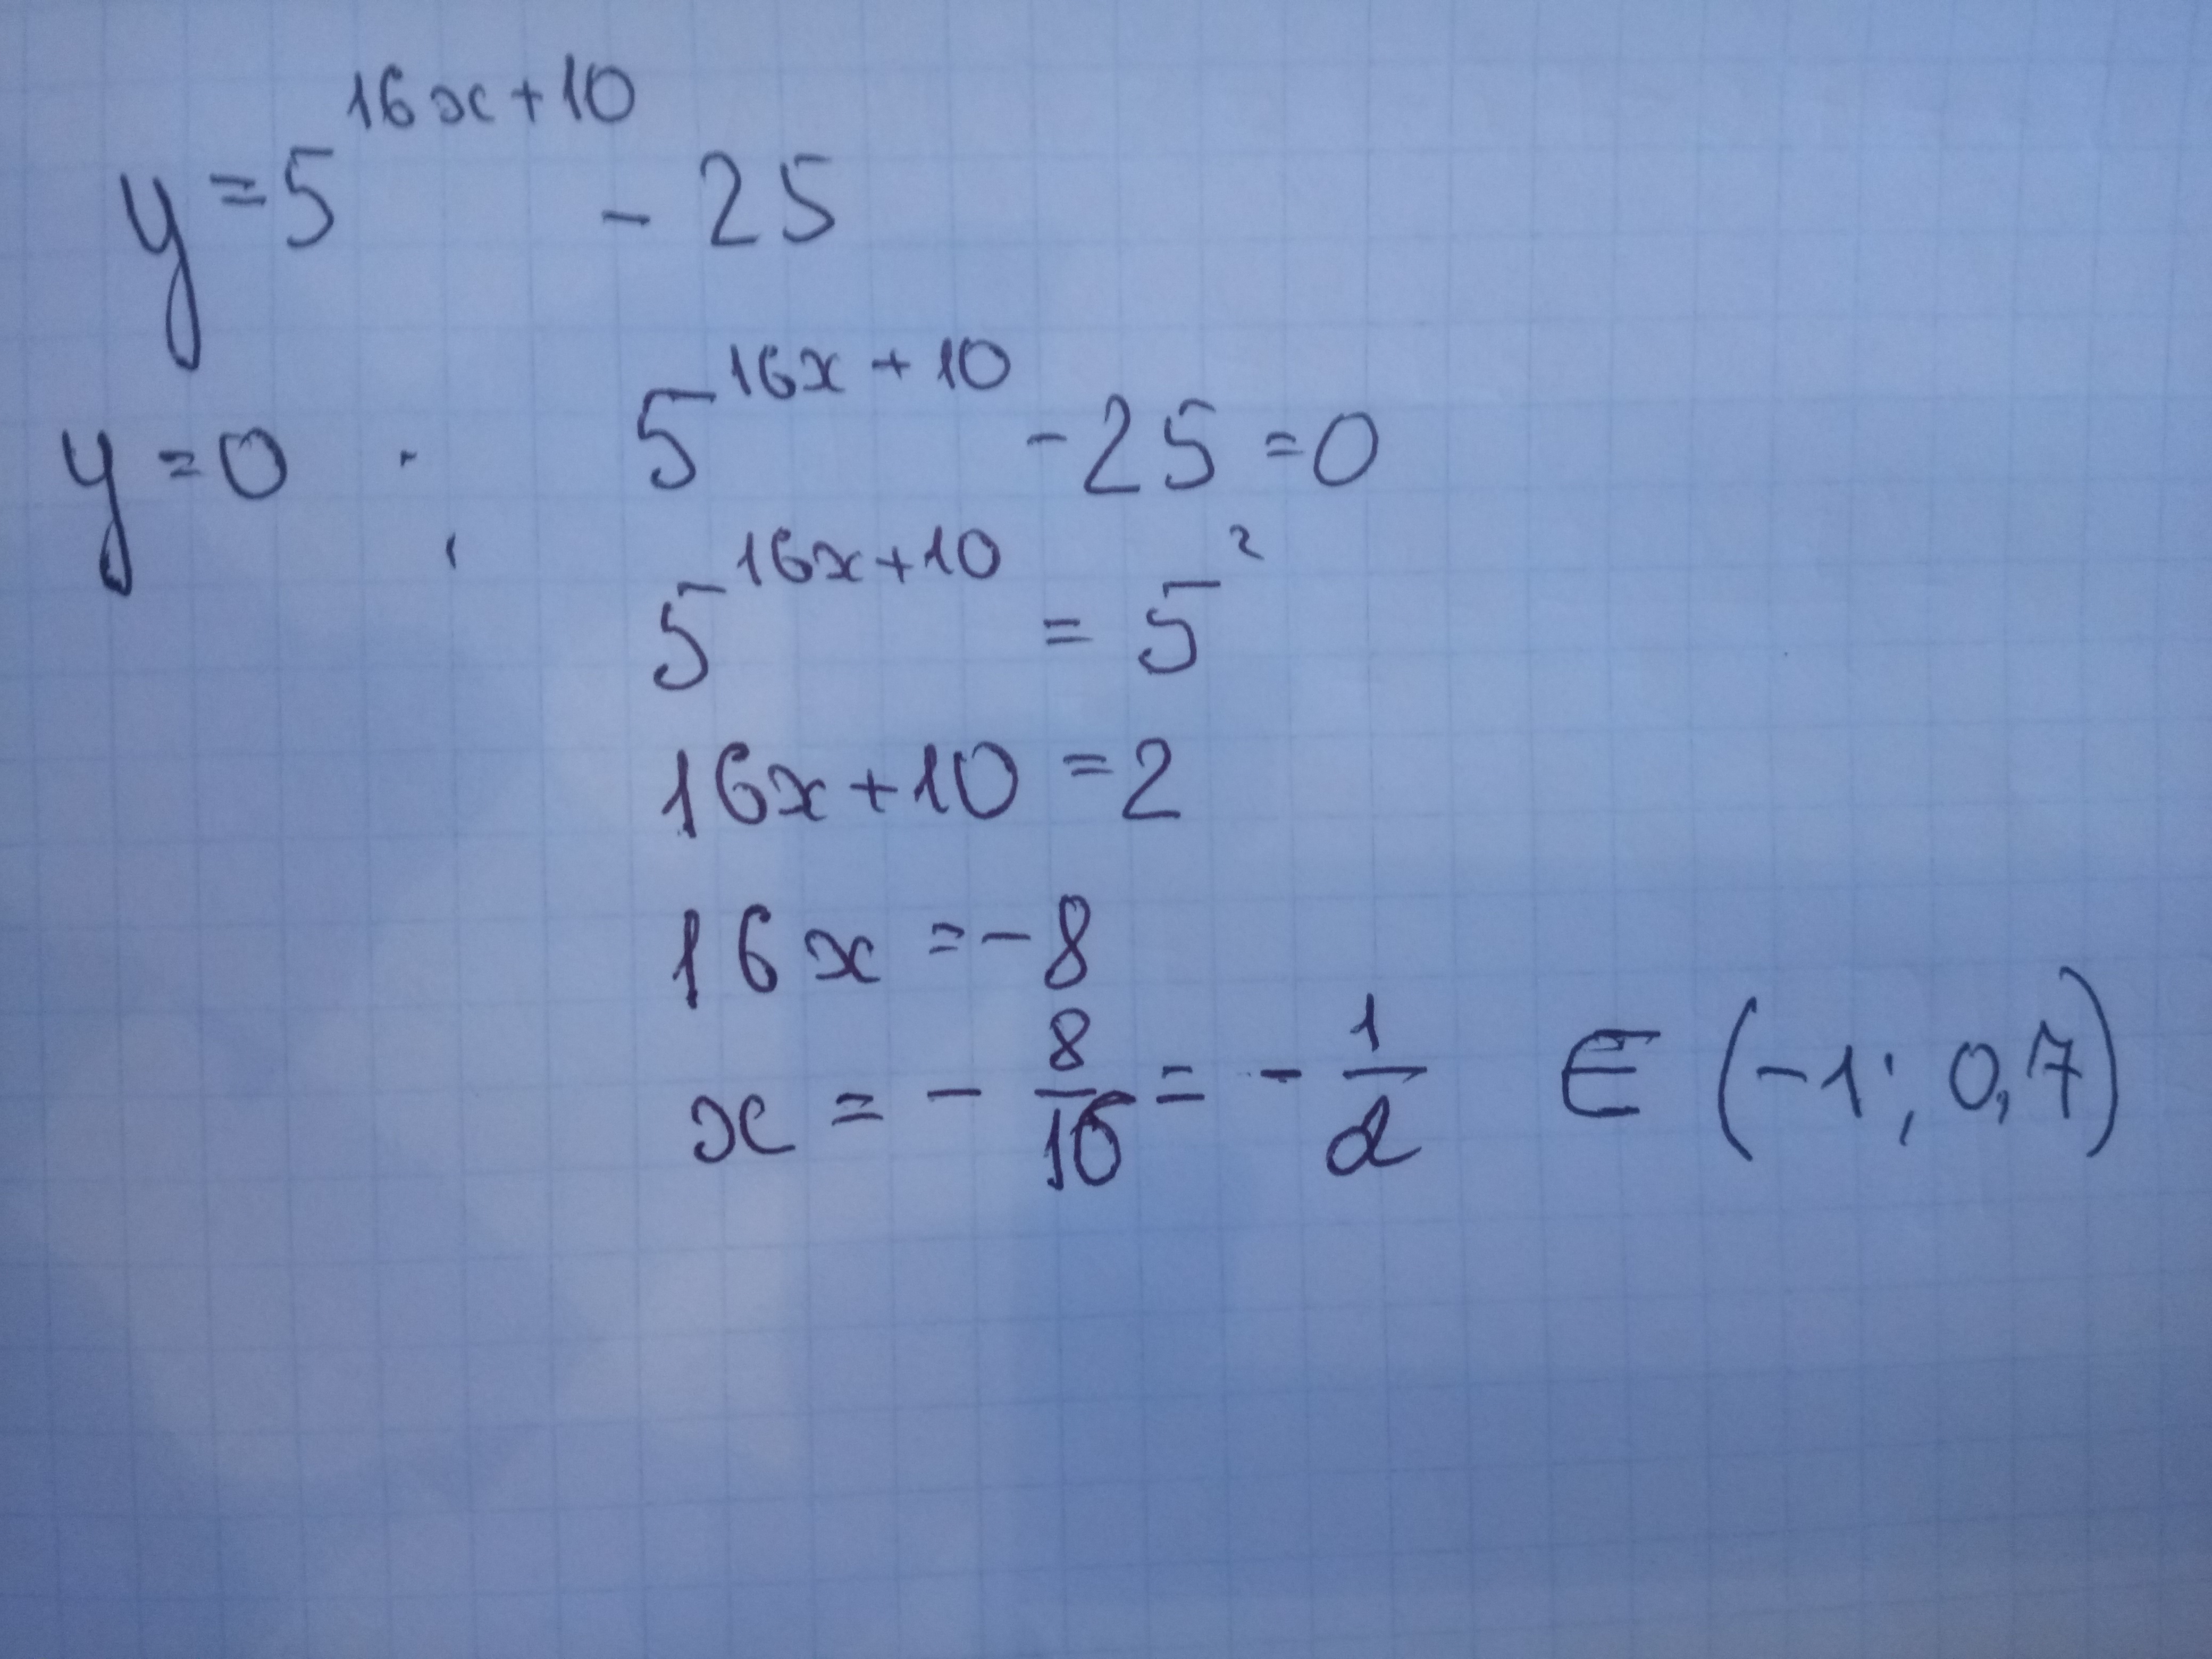 y = 5^{16x+10} - 25
y = 0 ; 5^{16x+10} - 25 = 0
5^{16x+10} = 5^2
16x + 10 = 2
16x = -8
x = - 8/16 = - 1/2 ∈ (-1; 0,7)